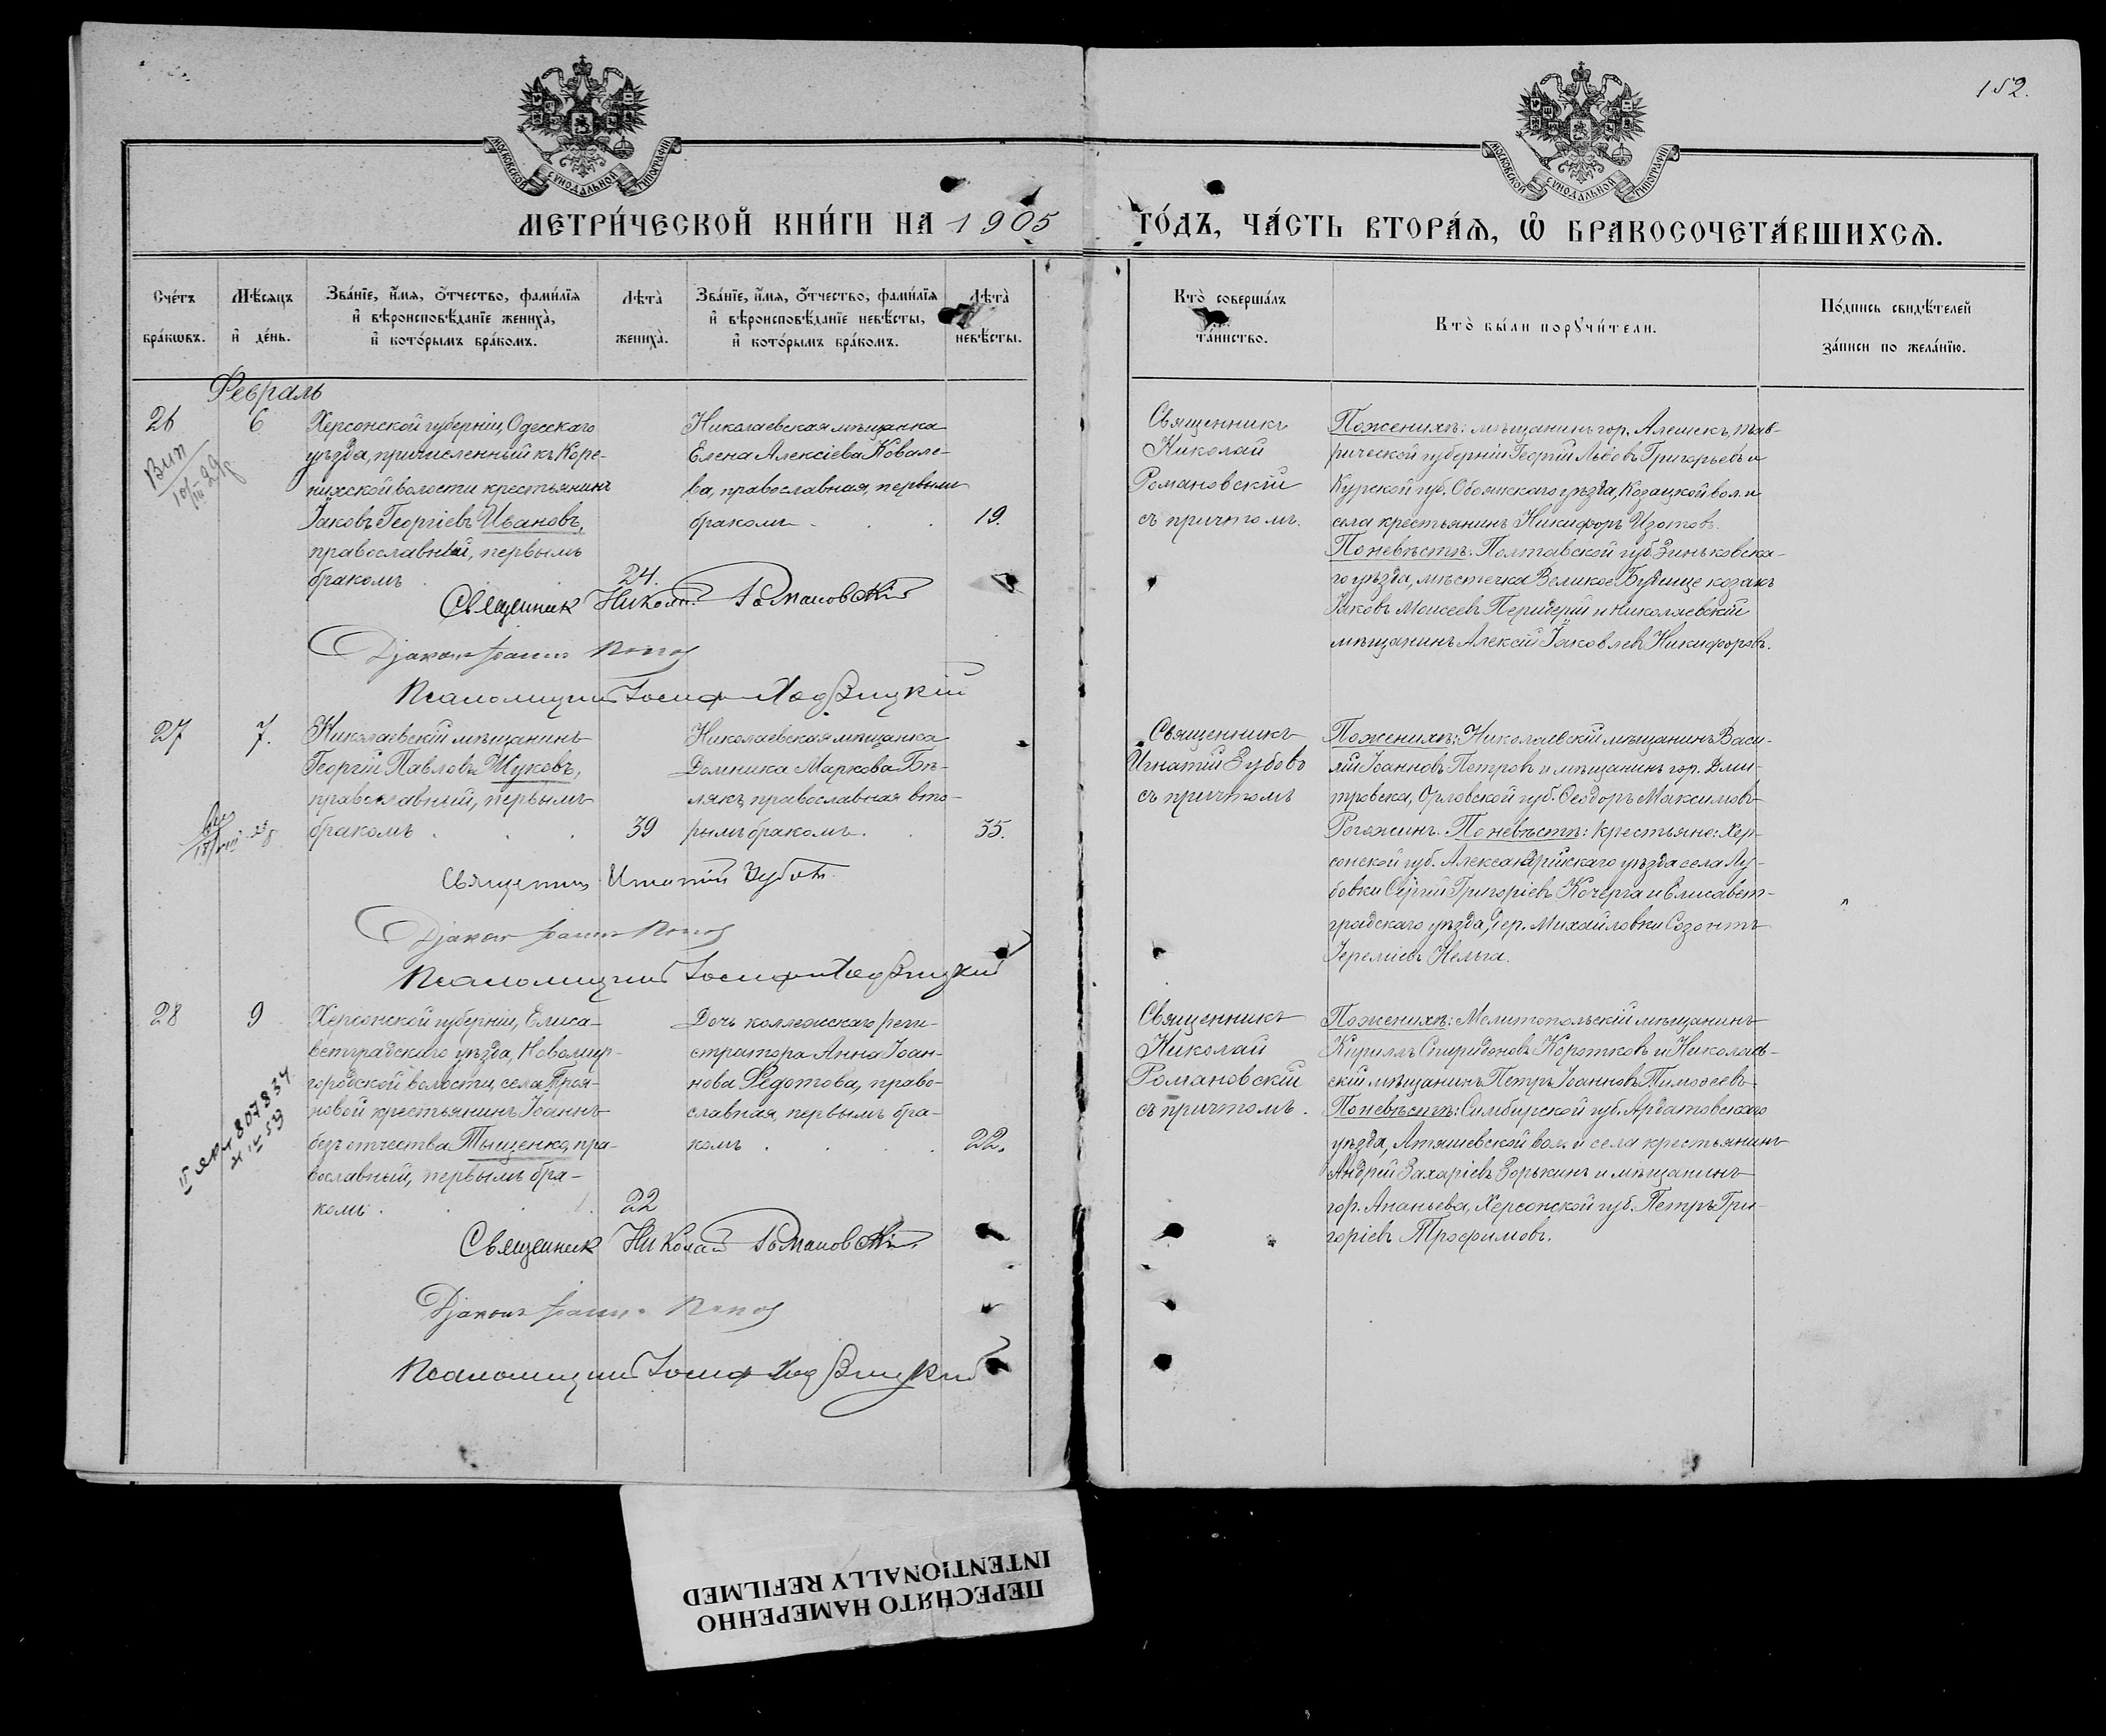 152.
МОСКОВСКОЙ СУНОДАЛЬНОЙ ТИПОГРАФІИ
МОСКОВСКОЙ СУНОДАЛЬНОЙ ТИПОГРАФІИ
МЕТРИ́ЧЕСКОЙ КНИ́ГИ НА 1905
ГО́ДЪ, ЧА́СТЬ ВТОРА́Ѧ, Ѽ БРАКОСОЧЕТА́ВШИХСѦ.
Сче́тъ бра́кѡвъ.
Мѣ́сяцъ и҆ де́нь.
Зва́нїе, и҆́мя, о҆́тчество, фами́лїя
и҆ вѣроисповѣ́данїе жениха̀,
и҆ кото́рымъ бра́комъ.
Лѣта̀ жениха̀.
Зва́нїе, и҆́мя, о҆́тчество, фами́лїя
и҆ вѣроисповѣ́данїе невѣ́сты,
и҆ кото́рымъ бра́комъ.
Лѣта̀ невѣ́сты.
Кто̀ соверша́лъ
та́инство.
Кто̀ бы́ли порꙋчи́тели.
По́дпись свидѣ́телей
за́писи по жела́нїю.
Февраль
26
6
Херсонской губерніи, Одесскаго
уѣзда, причисленный къ Коре-
нихской волости крестьянинъ
Іаковъ Георгіевъ Ивановъ,
православный, первымъ
бракомъ
24.
Николаевская мѣщанка
Елена Алексіева Ковале-
ва, православная, первымъ
бракомъ
19.
Священникъ
Николай
Романовскій
съ причтомъ.
По женихѣ: мѣщанинъ гор. Алешекъ, Тав-
рической губерніи Георгій Львовъ Григорьевъ и
Курской губ. Обоянскаго уѣзда, Козацкой вол. и
села крестьянинъ Никифоръ Изотовъ.
По невѣстѣ: Полтавской губ. Зиньковска-
го уѣзда, мѣстечка Великое Будище козакъ
Іаковъ Моисеевъ и Николаевскій
мѣщанинъ Алексій Іаковлевъ Никифоровъ.
Священникъ Николай Романовскій
Діаконъ Іоаннъ
Псаломщикъ Іосифъ
27
7.
Николаевскій мѣщанинъ
Георгій Павловъ Жуковъ,
православный, первымъ
бракомъ
39
Николаевская мѣщанка
Домника Маркова Бѣ-
лякъ православная вто-
рымъ бракомъ
35.
Священникъ
Игнатій Зубовъ
съ причтомъ
По женихѣ: Николаевскій мѣщанинъ Васи-
лій Іоанновъ Петровъ и мѣщанинъ гор. Дми-
тровска, Орловской губ. Ѳеодоръ Максимовъ
Рогожинъ. По невѣстѣ: крестьяне: Хер-
сонской губ. Александрійскаго уѣзда села Лу-
бовки Сергій Григоріевъ Кочерга и Елисавет-
градскаго уѣзда, дер. Михайловки Созонтъ
Іереміевъ
Священникъ Игнатій Зубовъ.
Діаконъ Іоаннъ
Псаломщикъ Іосифъ
28
9
Херсонской губерніи, Елиса-
ветградскаго уѣзда, Новомир-
городской волости, села
крестьянинъ Іоаннъ
безъ отчества Тыщенко, пра-
вославный, первымъ бра-
комъ
22
Дочь коллежскаго реги-
стратора Анна Іоан-
нова Федотова, право-
славная, первымъ бра-
комъ
22.
Священникъ
Николай
Романовскій
съ причтомъ.
По женихѣ: Мелитопольскій мѣщанинъ
Кириллъ Спиридоновъ Коротковъ и Николаев-
скій мѣщанинъ Петръ Іоанновъ Тимоѳеевъ
По невѣстѣ: Симбирской губ. Ардатовскаго
уѣзда, Атяшевской вол. и села крестьянинъ
Андрей Захаріевъ Зорькинъ и мѣщанинъ
гор. Ананьева, Херсонской губ. Петръ Гри-
горіевъ Трофимовъ.
Священникъ Николай Романовскій.
Діаконъ Іоаннъ
Псаломщикъ Іосифъ
ПЕРЕСНЯТО НАМЕРЕННО
INTENTIONALLY REFILMED